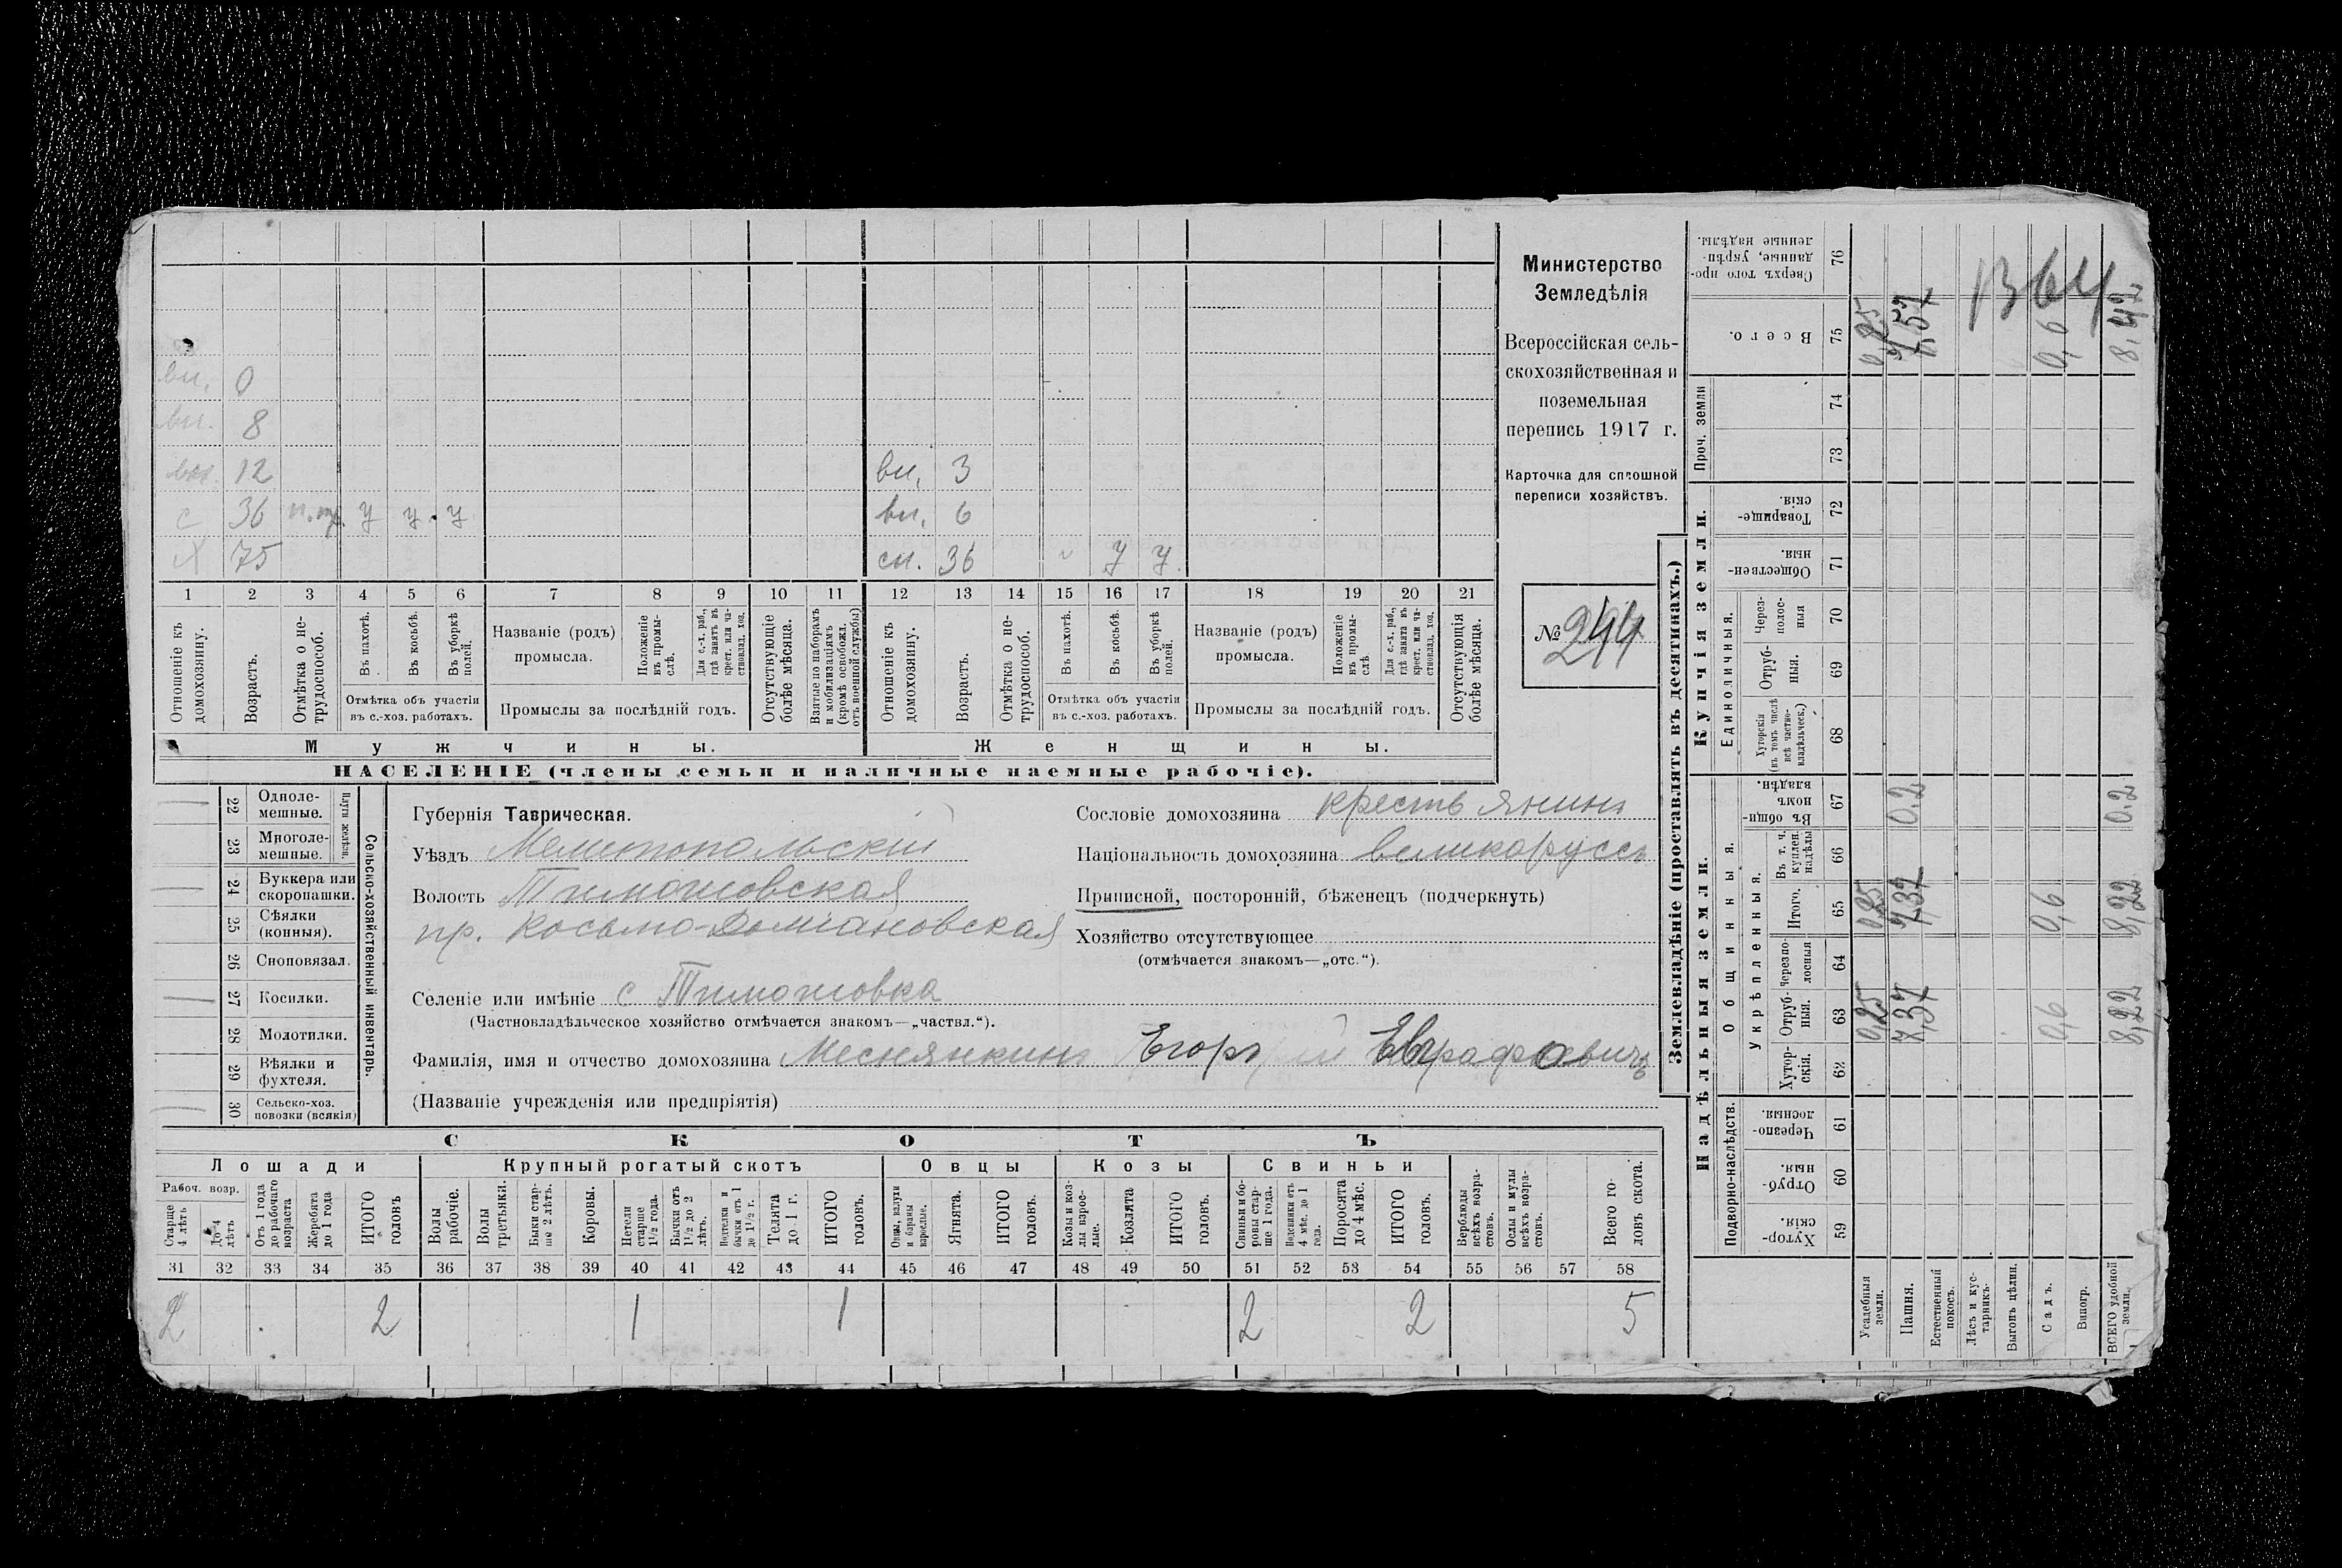 вн. 0
вн. 8
вн. 12 вн. 3
с 36 н.тр. у у у вн. 6
Х 75 сн. 36 у у
1 2 3 4 5 6 7 8 9 10 11 12 13 14 15 16 17 18 19 20 21
Отношеніе къ домохозяину.
Возрастъ.
Отмѣтка о не-трудоспособ.
Въ пахотѣ.
Въ косьбѣ.
Въ уборкѣ полей.
Отмѣтка объ участіи въ с.-хоз. работахъ.
Названіе (родъ) промысла.
Положеніе въ промы-слѣ.
Для с.-х. раб., гдѣ занятъ въ крест. или ча-стновлад. хоз.
Промыслы за послѣдній годъ.
Отсутствующіе болѣе мѣсяца.
Взятые по наборамъ и мобилизаціямъ (кромѣ освобожд. отъ военной службы)
Отношеніе къ домохозяину.
Возрастъ.
Отмѣтка о не-трудоспособ.
Въ пахотѣ.
Въ косьбѣ.
Въ уборкѣ полей.
Отмѣтка объ участіи въ с.-хоз. работахъ.
Названіе (родъ) промысла.
Положеніе въ промы-слѣ.
Для с.-х. раб., гдѣ занята въ крест. или ча-стновлад. хоз.
Промыслы за послѣдній годъ.
Отсутствующія болѣе мѣсяца.
Мужчины. Женщины.
НАСЕЛЕНІЕ (члены семьи и наличные наемные рабочіе).
Министерство
Земледѣлія
Всероссійская сель-
скохозяйственная и
поземельная
перепись 1917 г.
Карточка для сплошной
переписи хозяйствъ.
№ 244
22 Одноле-мешные.
23 Многоле-мешные.
Плуги желѣзн.
24 Буккера или скоропашки.
25 Сѣялки (конныя).
26 Сноповязал.
27 Косилки.
28 Молотилки.
29 Вѣялки и фухтеля.
30 Сельско-хоз. повозки (всякія)
Сельско-хозяйственный инвентарь.
Губернія Таврическая.
Уѣздъ Мелитопольскій
Волость Тимошовская
пр. Косьмо-Доміановская
Селеніе или имѣніе с Тимошовка
(Частновладѣльческое хозяйство отмѣчается знакомъ—„частвл.“).
Фамилія, имя и отчество домохозяина Меснянкинъ Егоръ Евграфовичъ
(Названіе учрежденія или предпріятія)
Сословіе домохозяина крестьянинъ
Національность домохозяина великоруссъ
Приписной, посторонній, бѣженецъ (подчеркнуть)
Хозяйство отсутствующее
(отмѣчается знакомъ—„отс.“).
СКОТЪ
Лошади Крупный рогатый скотъ Овцы Козы Свиньи
Рабоч. возр.
Старше 4 лѣтъ
До 4 лѣтъ
Отъ 1 года до рабочаго возраста
Жеребята до 1 года
ИТОГО головъ
Волы рабочіе.
Волы третьяки.
Быки стар-ше 2 лѣтъ.
Коровы.
Нетели старше 1½ года.
Бычки отъ 1½ до 2 лѣтъ.
Подтелки и бычки отъ 1 до 1½ г.
Телята до 1 г.
ИТОГО головъ.
Овцы, валухи и бараны взрослые.
Ягнята.
ИТОГО головъ.
Козы и коз-лы взрос-лые.
Козлята
ИТОГО головъ.
Свиньи и бо-ровы стар-ше 1 года.
Подсвинки отъ 4 мѣс. до 1 года.
Поросята до 4 мѣс.
ИТОГО головъ.
Верблюды всѣхъ возра-стовъ.
Ослы и мулы всѣхъ возра-стовъ.
Всего го-ловъ скота.
31 32 33 34 35 36 37 38 39 40 41 42 43 44 45 46 47 48 49 50 51 52 53 54 55 56 57 58
2 2 1 1 2 2 5
Землевладѣніе (проставлять въ десятинахъ.)
Надѣльныя земли. Купчія земли. Проч. земли
Подворно-наслѣдств.
Общинныя.
Укрѣпленныя.
Единоличныя.
59 Хутор-скія.
60 Отруб-ныя.
61 Черезпо-лосныя.
62 Хутор-скія.
63 Отруб-ныя. 0,25 7,37 0,6 8,22
64 Черезпо-лосныя
65 Итого. 0,25 7,37 0,6 8,22
66 Въ т. ч. куплен. надѣлы
67 Въ общи-номъ владѣн. 0.2 0.2
68 Хуторскія (въ томъ числѣ всѣ частно-владѣльческ.)
69 Отруб-ныя.
70 Через-полос-ныя
71 Обществен-ныя.
72 Товарище-скія.
73
74
75 Всего. 0,25 7,57 0,6 8,42
76 Сверхъ того про-данные, укрѣп-ленные надѣлы.
Усадебныя земли.
Пашня.
Естественный покосъ.
Лѣсъ и кус-тарникъ.
Выгонъ цѣлин.
Садъ.
Виногр.
ВСЕГО удобной земли.